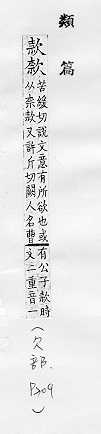 類篇
款款
苦緩切說文意有所欲也或
从柰款又許斤切闕人名曹
有公子款時
文二重音一
(欠部. P309)